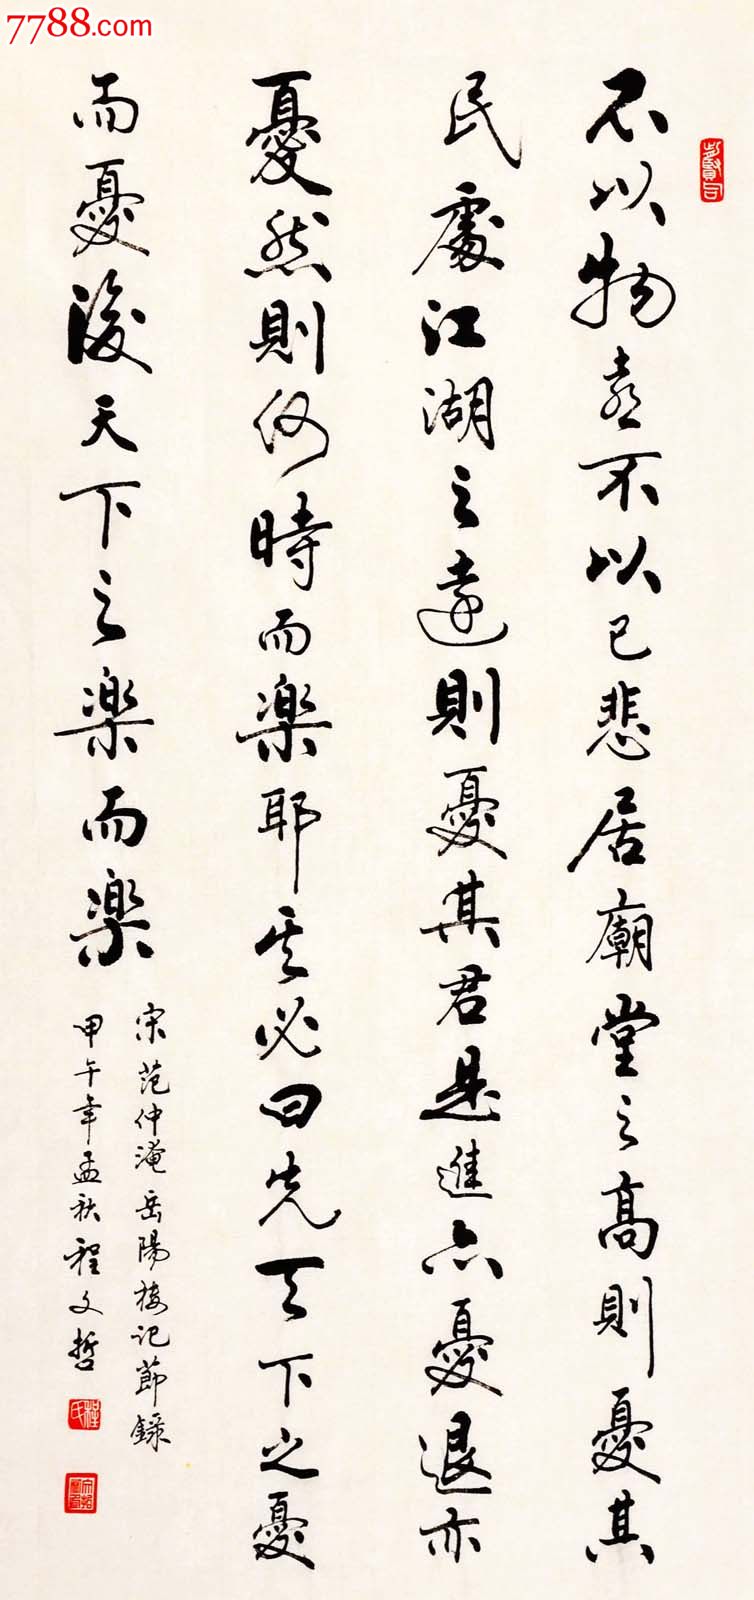 7788.com
不以物喜不以己悲居廟堂之高則憂其
民處江湖之遠則憂其君是進亦憂退亦
憂然則何時而楽耶其必曰先天下之憂
而憂後天下之楽而楽
宋范仲淹岳陽楼记節錄
甲午年孟秋程文哲